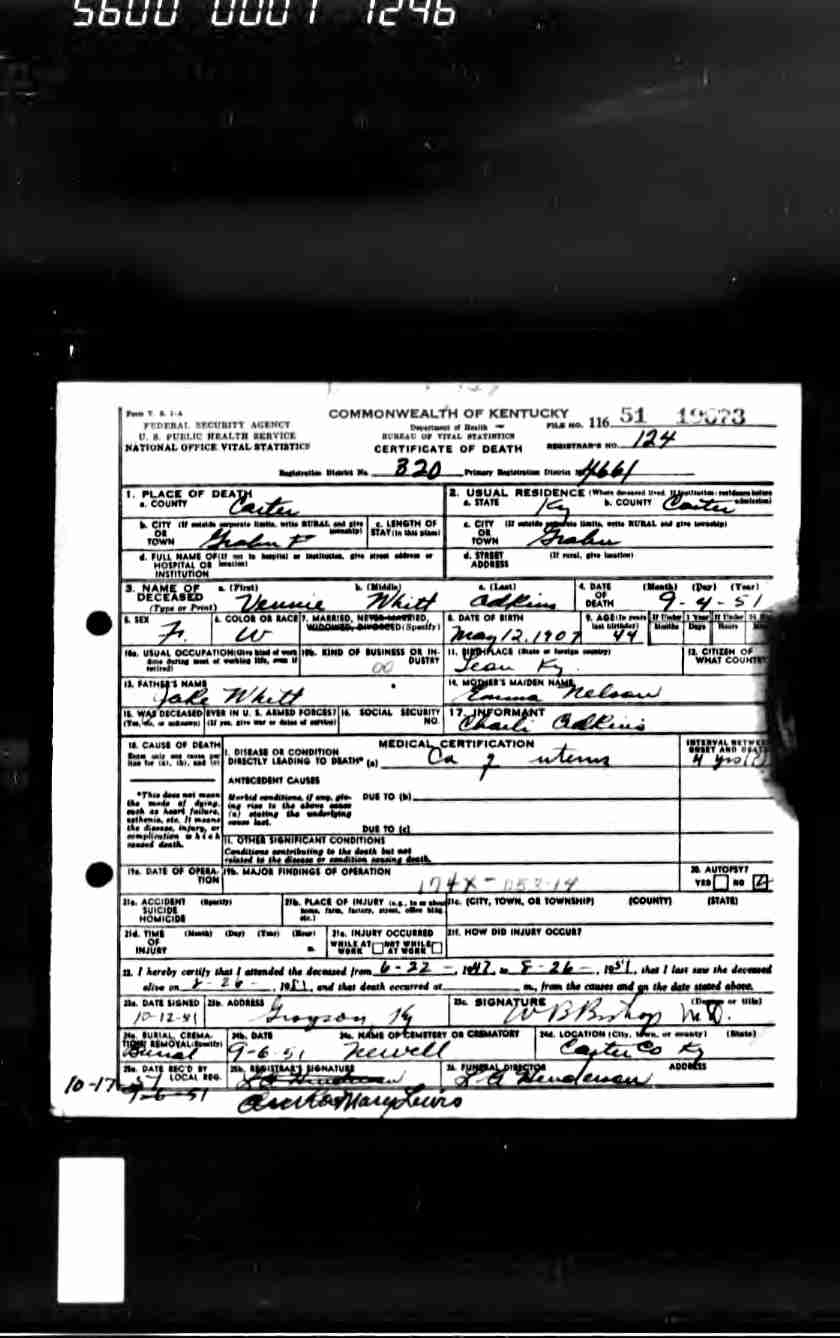 5600 0001 1296
Form V. S. 1-A
COMMONWEALTH OF KENTUCKY
FEDERAL SECURITY AGENCY
U. S. PUBLIC HEALTH SERVICE
NATIONAL OFFICE VITAL STATISTICS
Department of Health
BUREAU OF VITAL STATISTICS
CERTIFICATE OF DEATH
FILE NO. 116 51
REGISTRAR'S NO. 124
Registration District No. 320 Primary Registration District No. 4661
1. PLACE OF DEATH
a. COUNTY Carter
2. USUAL RESIDENCE (Where deceased lived. If institution: residence before admission)
a. STATE Ky b. COUNTY Carter
b. CITY (If outside corporate limits, write RURAL and give township)
OR TOWN Grahn
c. LENGTH OF STAY (in this place)
c. CITY (If outside corporate limits, write RURAL and give township)
OR TOWN Grahn
d. FULL NAME OF (If not in hospital or institution, give street address or location)
HOSPITAL OR INSTITUTION
d. STREET ADDRESS (If rural, give location)
3. NAME OF DECEASED (Type or Print)
a. (First) b. (Middle) c. (Last)
Vennie Whitt Adkins
4. DATE OF DEATH (Month) (Day) (Year)
9-4-51
5. SEX F.
6. COLOR OR RACE W
7. MARRIED, NEVER MARRIED, WIDOWED, DIVORCED (Specify)
8. DATE OF BIRTH May 12, 1907
9. AGE (In years last birthday) 44
If Under 1 Year Months Days
If Under 24 Hours
10a. USUAL OCCUPATION (Give kind of work done during most of working life, even if retired)
10b. KIND OF BUSINESS OR INDUSTRY 00
11. BIRTHPLACE (State or foreign country) Ky.
12. CITIZEN OF WHAT COUNTRY
13. FATHER'S NAME Jake Whitt
14. MOTHER'S MAIDEN NAME Emma Nelson
15. WAS DECEASED EVER IN U. S. ARMED FORCES?
(Yes, no, or unknown) (If yes, give war or dates of service)
16. SOCIAL SECURITY NO.
17. INFORMANT Charli Adkins
18. CAUSE OF DEATH
Enter only one cause per line for (a), (b), and (c)
MEDICAL CERTIFICATION
INTERVAL BETWEEN ONSET AND DEATH
I. DISEASE OR CONDITION DIRECTLY LEADING TO DEATH* (a) Ca of uterus 4 yrs(?)
*This does not mean the mode of dying, such as heart failure, asthenia, etc. It means the disease, injury, or complication which caused death.
ANTECEDENT CAUSES
Morbid conditions, if any, giving rise to the above cause (a) stating the underlying cause last.
DUE TO (b)
DUE TO (c)
II. OTHER SIGNIFICANT CONDITIONS
Conditions contributing to the death but not related to the disease or condition causing death.
19a. DATE OF OPERATION
19b. MAJOR FINDINGS OF OPERATION
174X-
20. AUTOPSY?
YES NO
21a. ACCIDENT SUICIDE HOMICIDE (Specify)
21b. PLACE OF INJURY (e.g., in or about home, farm, factory, street, office bldg. etc.)
21c. (CITY, TOWN, OR TOWNSHIP) (COUNTY) (STATE)
21d. TIME OF INJURY (Month) (Day) (Year) (Hour) m.
21e. INJURY OCCURRED
WHILE AT WORK NOT WHILE AT WORK
21f. HOW DID INJURY OCCUR?
22. I hereby certify that I attended the deceased from 6-22-, 1947, to 8-26-, 1951, that I last saw the deceased
alive on 8-26-, 1951, and that death occurred at m., from the causes and on the date stated above.
23a. DATE SIGNED 10-12-51
23b. ADDRESS Grayson Ky
23c. SIGNATURE (Degree or title)
W B Bishop M.D.
24a. BURIAL, CREMATION, REMOVAL (Specify) Burial
24b. DATE 9-6-51
24c. NAME OF CEMETERY OR CREMATORY Newell
24d. LOCATION (City, town, or county) (State)
Carter Co Ky
25a. DATE REC'D BY LOCAL REG.
10-17-51
9-6-51
25b. REGISTRAR'S SIGNATURE
Mary Lewis
26. FUNERAL DIRECTOR ADDRESS
L A Henderson